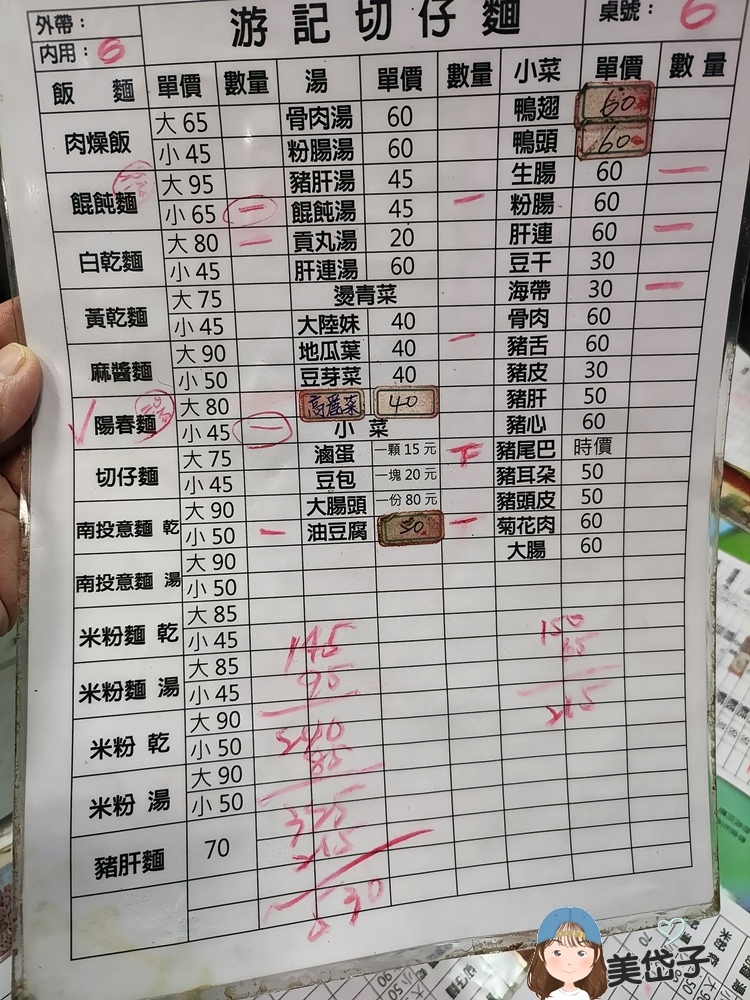 游記切仔麵
外帶：
內用：6
桌號：6
飯 麵 單價 數量 湯 單價 數量 小菜 單價 數量
肉燥飯 大 65 骨肉湯 60 鴨翅 60
小 45 粉腸湯 60 鴨頭 60
餛飩麵 大 95 豬肝湯 45 生腸 60 一
小 65 一 餛飩湯 45 一 粉腸 60
白乾麵 大 80 一 貢丸湯 20 肝連 60 一
小 45 肝連湯 60 豆干 30
黃乾麵 大 75 燙青菜 海帶 30 一
小 45 大陸妹 40 骨肉 60
麻醬麵 大 90 地瓜葉 40 一 豬舌 60
小 50 豆芽菜 40 豬皮 30
陽春麵 大 80 高麗菜 40 豬肝 50
小 45 一 小菜 豬心 60
切仔麵 大 75 滷蛋 一顆 15 元 下 豬尾巴 時價
小 45 豆包 一塊 20 元 豬耳朵 50
南投意麵 乾 大 90 大腸頭 一份 80 元 豬頭皮 50
小 50 一 油豆腐 50 一 菊花肉 60
南投意麵 湯 大 90 大腸 60
小 50
米粉麵 乾 大 85
小 45
米粉麵 湯 大 85
小 45
米粉 乾 大 90
小 50
米粉 湯 大 90
小 50
豬肝麵 70
150
美岱子